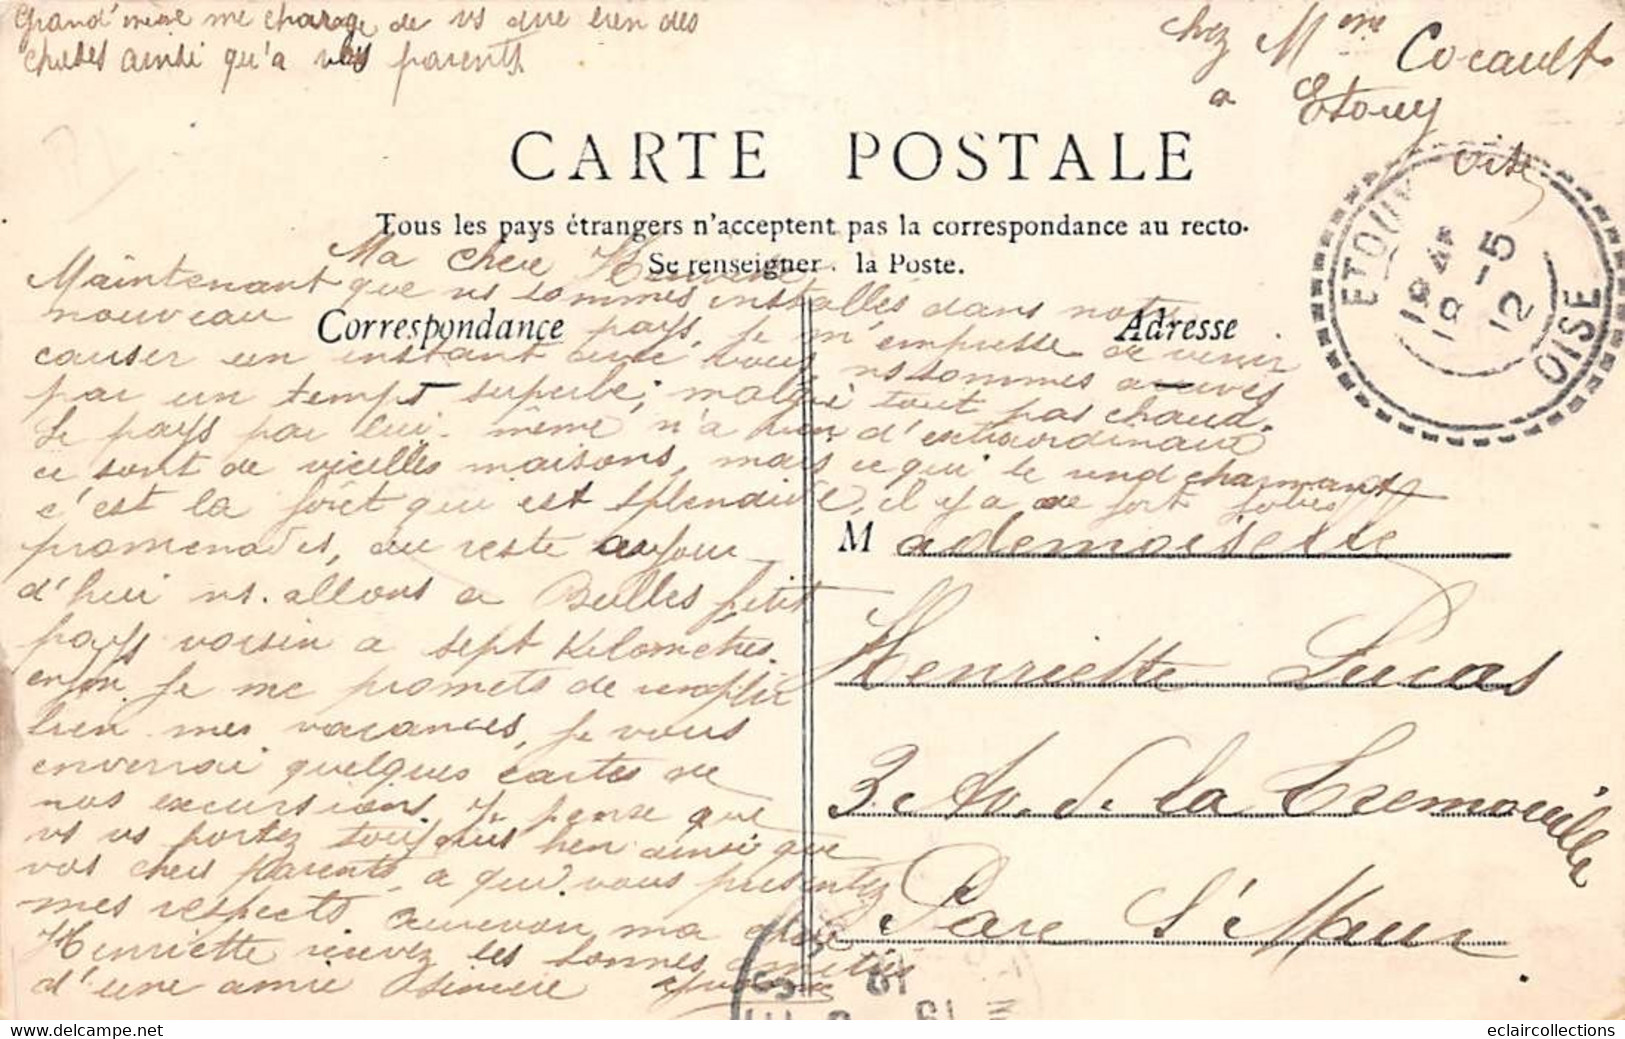 Grand'mère me charge de vs dire bien des
choses ainsi qu'à vos parents
chez Mme Cocault
a Etouy
oise
CARTE POSTALE
Tous les pays étrangers n'acceptent pas la correspondance au recto.
Se renseigner à la Poste.
Ma chere Henriette
Maintenant que ns sommes installés dans notre
nouveau pays, je m'empresse de venir
Correspondance
Adresse
causer un instant avec vous, ns sommes arrivés
par un temps superbe, malgré tout pas chaud.
Le pays par lui-même n'a rien d'extraordinaire
ce sont de vieilles maisons, mais ce qui le rend charmant
c'est la forêt qui est splendide, il y a de fort jolies
promenades, du reste aujour
d'hui ns. allons a Bulles petit
pays voisin a sept Kilometres.
enfin. Je me promets de remplir
bien mes vacances, je vous
enverrai quelques cartes de
nos excursions. Je pense que
vs vs portez toujours bien ainsi que
vos chers parents, a qui vous presentez
mes respects aurevoir ma chère
Henriette recevez les bonnes amitiés
d'une amie sincère
M ademoiselle
Henriette Lucas
3 Av. de la Tremouille
Parc St Maur.
ETOUY
OISE
18 4
18 -5
12
eclaircollections